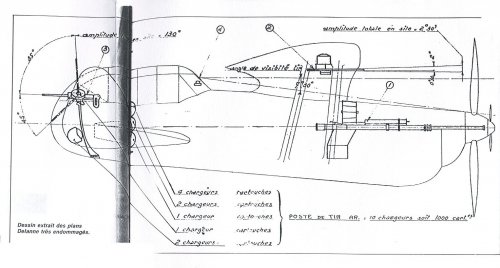 amplitude en site = 130°
amplitude totale en site = 2°30'
angle de visibilité tir
85°
45°
10°
3
4
2
1
4 chargeurs cartouches
2 chargeurs cartouches
1 chargeur cartouches
1 chargeur cartouches
2 chargeurs cartouches
POSTE DE TIR AR. : 10 chargeurs soit 1000 cart.
Dessin extrait des plans
Delanne très endommagés.